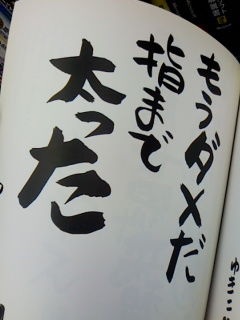 もうダメだ
指まで
太った
ゆきこ